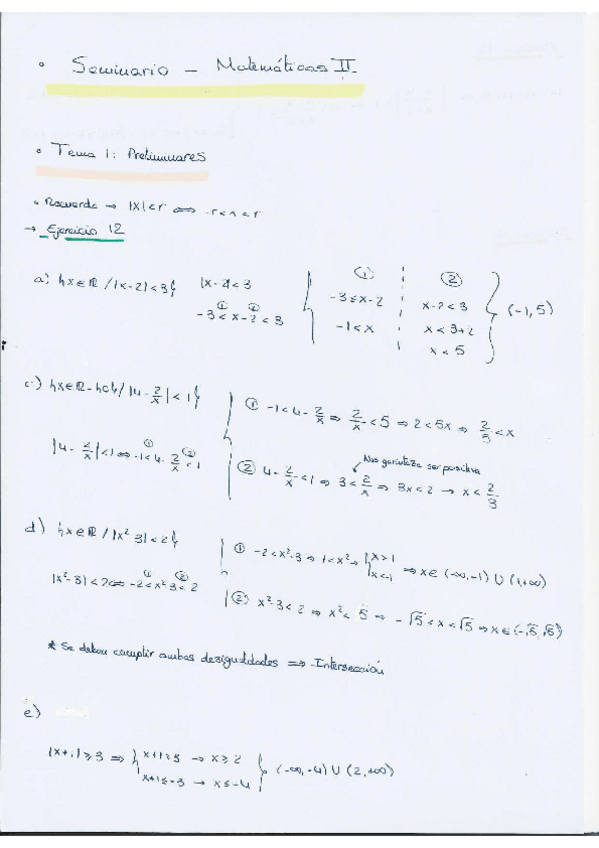 • Seminario – Matemáticas II.
• Tema 1: Preliminares
• Recuerda → |x| < r ⟺ -r < x < r
→ Ejercicio 12
a) {x ∈ ℝ / |x-2| < 3} |x-2| < 3
-3 < x-2 < 3
① ②
-3 ≤ x-2
-1 < x
x-2 < 3
x < 3+2
x < 5
(-1, 5)
c) {x ∈ ℝ-{0} / |4 - 2/x| < 1}
|4 - 2/x| < 1 ⟺ -1 < 4 - 2/x < 1
① -1 < 4 - 2/x ⇒ 2/x < 5 ⇒ 2 < 5x ⇒ 2/5 < x
Nos garantiza ser positiva
② 4 - 2/x < 1 ⇒ 3 < 2/x ⇒ 3x < 2 → x < 2/3
d) {x ∈ ℝ / |x²-3| < 2}
|x²-3| < 2 ⟺ -2 < x²-3 < 2
① -2 < x²-3 ⇒ 1 < x² → { x > 1 x < -1 ⇒ x ∈ (-∞, -1) ∪ (1, +∞)
② x²-3 < 2 ⇒ x² < 5 ⇒ -√5 < x < √5 ⇒ x ∈ (-√5, √5)
* Se deben cumplir ambas desigualdades ⟹ Intersección
e)
|x+1| ≥ 3 ⇒ { x+1 ≥ 3 → x ≥ 2
x+1 ≤ -3 → x ≤ -4
} (-∞, -4) ∪ (2, +∞)